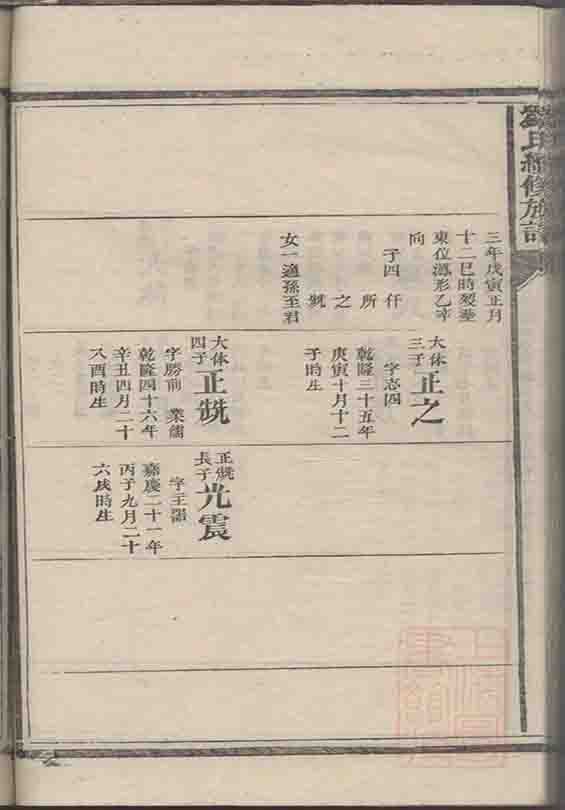 劉氏續修族譜
三年戊寅正月
十二巳時歿葬
東位鳳形乙辛
向
子四 仟
所
之
兟
女一適孫至君
大体三子 正之
字志四
乾隆三十五年
庚寅十月十二
子時生
大体四子 正兟
字勝前 業儒
乾隆四十六年
辛丑四月二十
八酉時生
正兟長子 光震
字王
嘉慶二十一年
丙子九月二十
六戌時生
上海圖書館藏